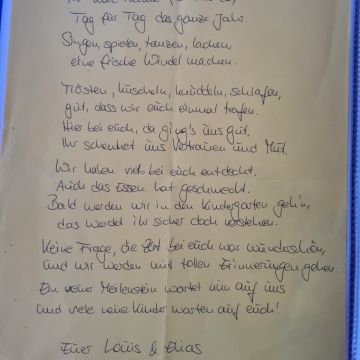 Tag für Tag das ganze Jahr.
Singen, spielen, tanzen, lachen
eine frische Windel machen.
Trösten, kuscheln, knuddeln, schlafen,
gut, dass wir euch einmal trafen.
Hier bei euch, da ging's uns gut.
Ihr schenktet uns Vertrauen und Mut.
Wir haben viel bei euch entdeckt,
Auch das Essen hat geschmeckt.
Bald werden wir in den Kindergarten geh'n,
das werdet ihr sicher doch verstehen.
Keine Frage, die Zeit bei euch war wunderschön,
und wir werden mit tollen Erinnerungen gehen.
Ein neuer Meilenstein wartet nun auf uns
und viele neue Kinder warten auf euch!
Euer Louis & Elias